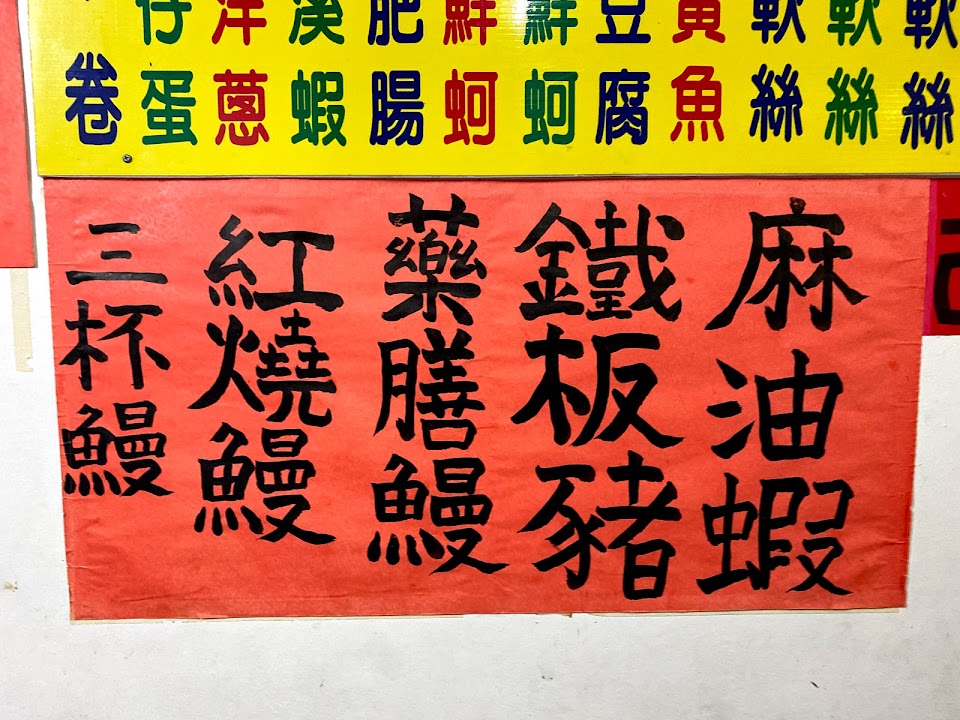 軟絲
軟絲
軟絲
黃魚
豆腐
鮮蚵
鮮蚵
肥腸
溪蝦
洋蔥
仔蛋
卷
麻油蝦
鐵板豬
藥膳鰻
紅燒鰻
三杯鰻